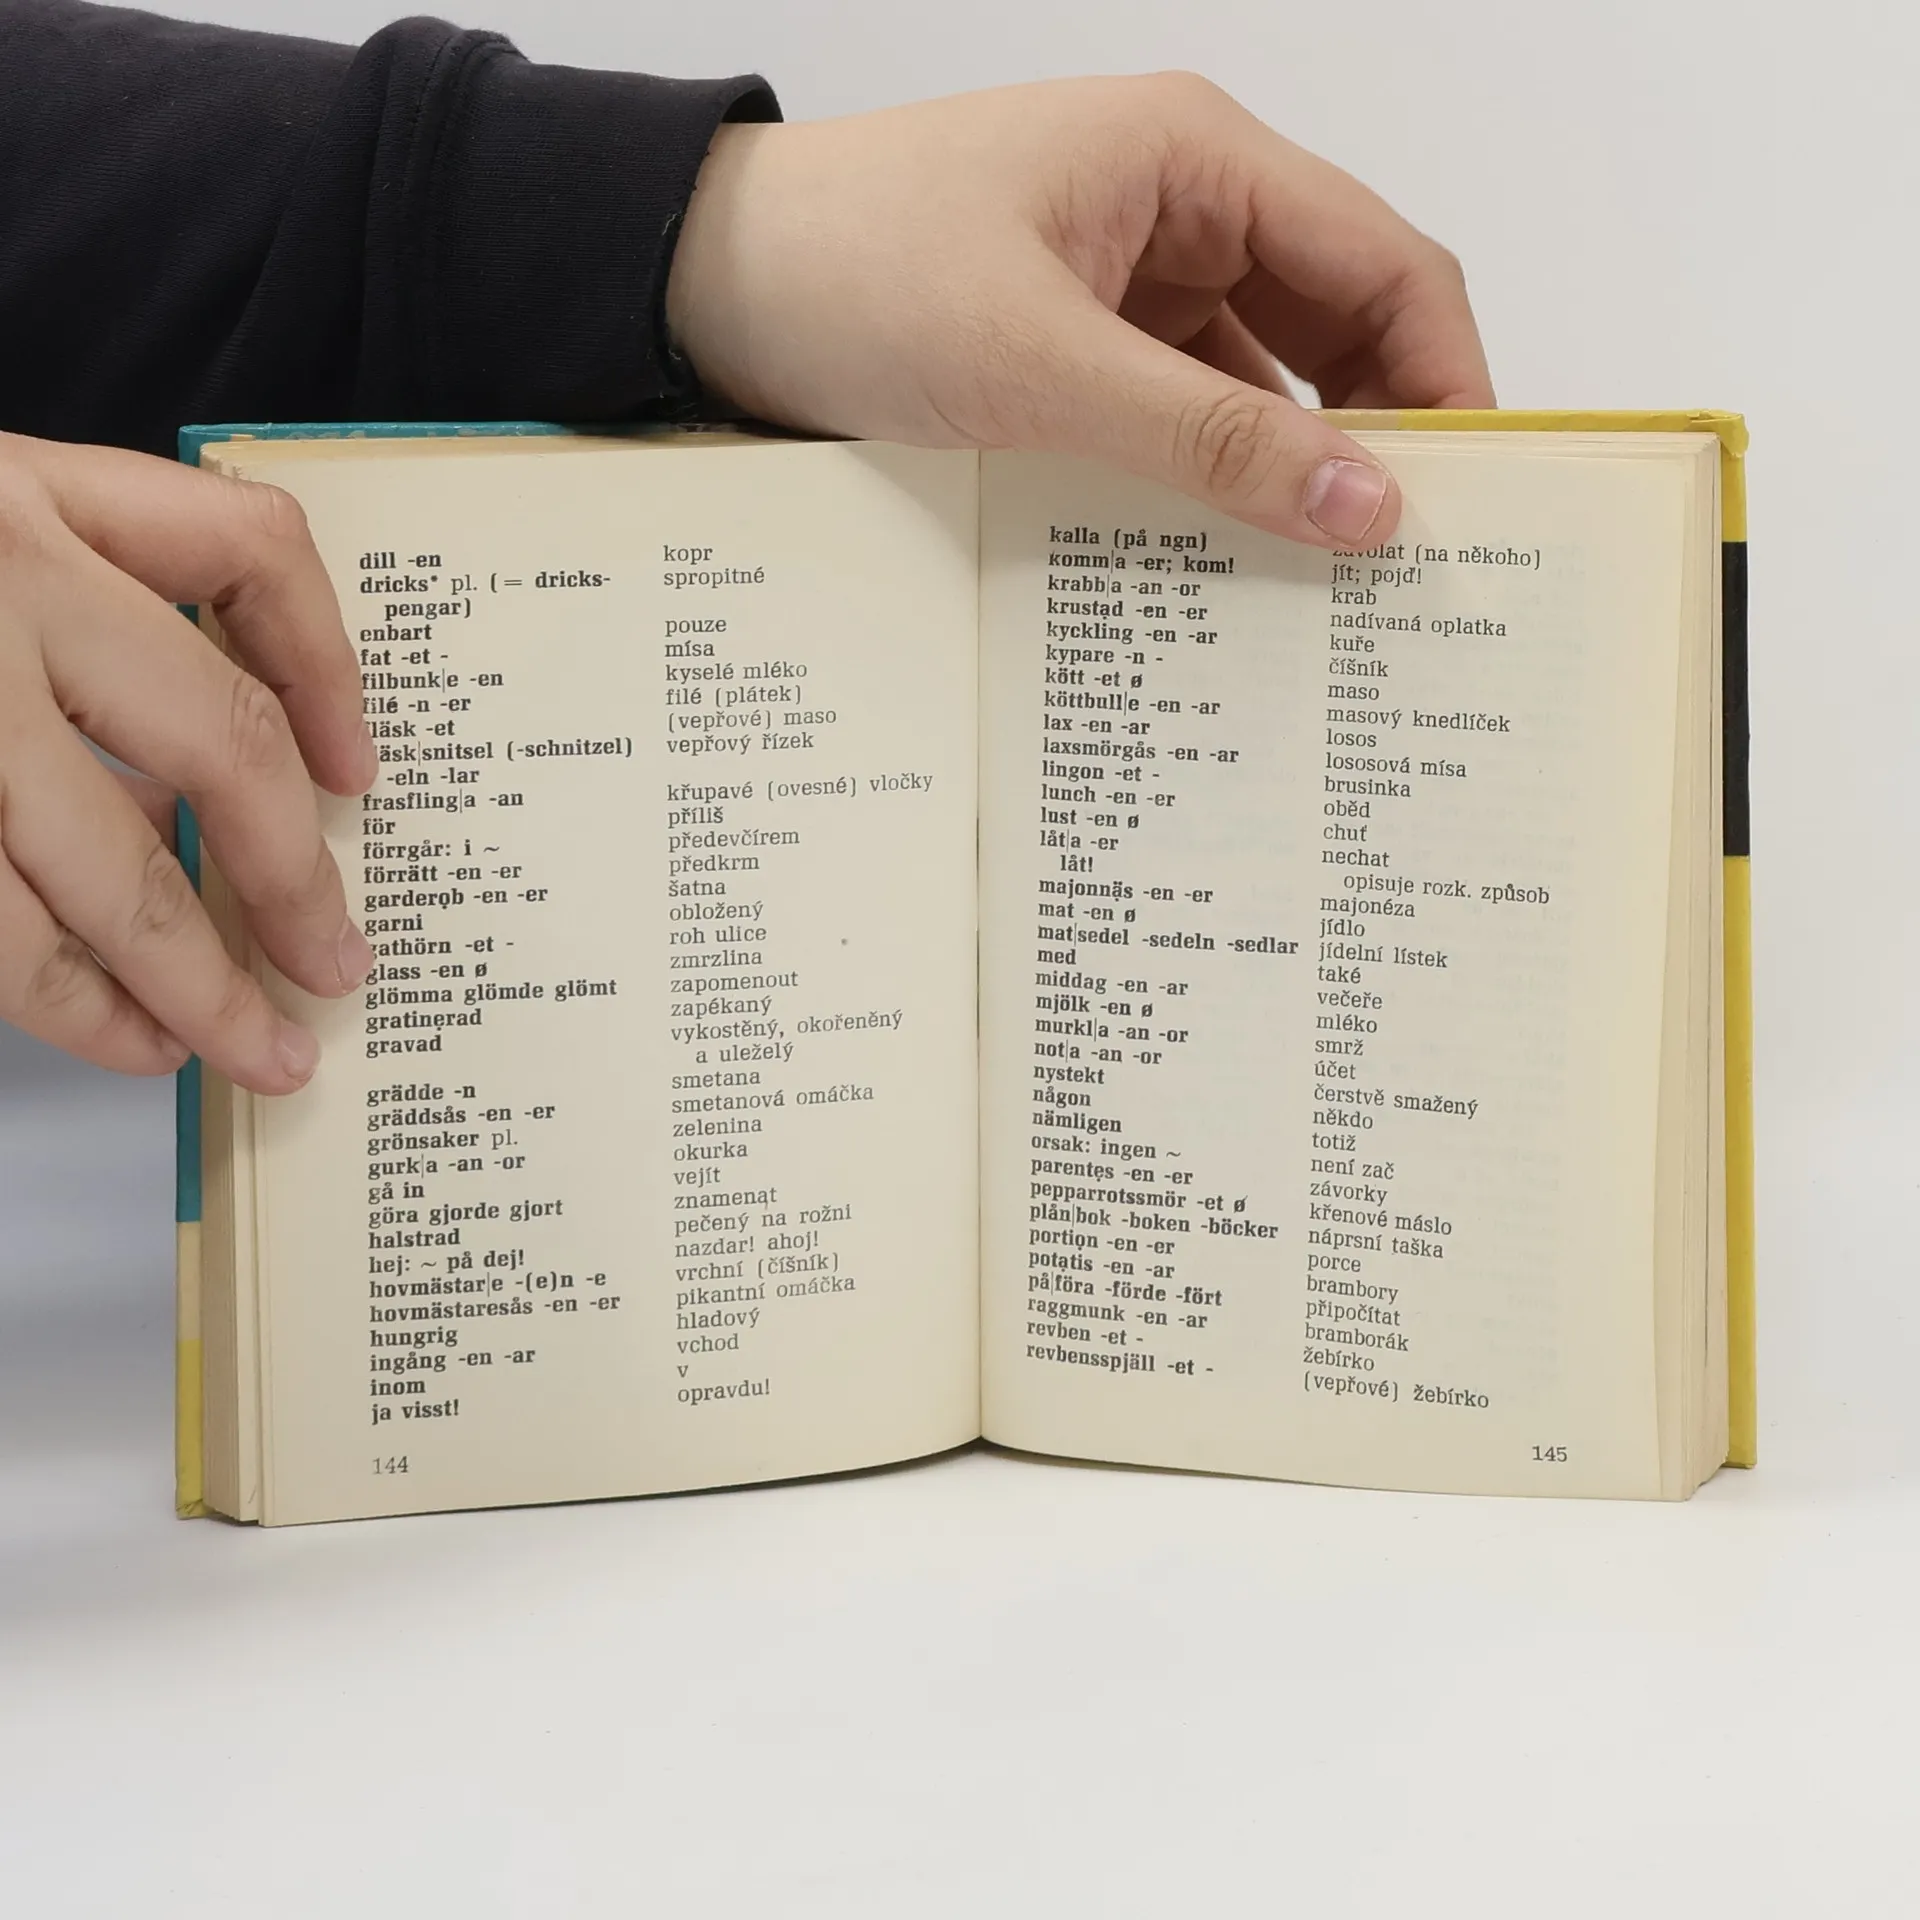 dill -en kopr
dricks* pl. (= dricks- spropitné
pengar)
enbart pouze
fat -et - mísa
filbunk|e -en kyselé mléko
filé -n -er filé (plátek)
-et (vepřové) maso
(-schnitzel) vepřový řízek
-eln -lar
frasfling|a -an křupavé (ovesné) vločky
för příliš
förrgår: i ~ předevčírem
förrätt -en -er předkrm
garderọb -en -er šatna
garni obložený
gathörn -et - roh ulice
glass -en ø zmrzlina
glömma glömde glömt zapomenout
gratinẹrad zapékaný
gravad vykostěný, okořeněný
a uleželý
grädde -n smetana
gräddsås -en -er smetanová omáčka
grönsaker pl. zelenina
gurk|a -an -or okurka
gå in vejít
göra gjorde gjort znamenat
halstrad pečený na rožni
hej: ~ på dej! nazdar! ahoj!
hovmästar|e -(e)n -e vrchní (číšník)
hovmästaresås -en -er pikantní omáčka
hungrig hladový
ingång -en -ar vchod
inom v
ja visst! opravdu!
144
kalla (på ngn) (na někoho)
komm|a -er; kom! jít; pojď!
krabb|a -an -or krab
krustạd -en -er nadívaná oplatka
kyckling -en -ar kuře
kypare -n - číšník
kött -et ø maso
köttbull|e -en -ar masový knedlíček
lax -en -ar losos
laxsmörgås -en -ar lososová mísa
lingon -et - brusinka
lunch -en -er oběd
lust -en ø chuť
låt|a -er nechat
låt! opisuje rozk. způsob
majonnạ̈s -en -er majonéza
mat -en ø jídlo
mat|sedel -sedeln -sedlar jídelní lístek
med také
middag -en -ar večeře
mjölk -en ø mléko
murkl|a -an -or smrž
not|a -an -or účet
nystekt čerstvě smažený
någon někdo
nämligen totiž
orsak: ingen ~ není zač
parentẹs -en -er závorky
pepparrotssmör -et ø křenové máslo
plån|bok -boken -böcker náprsní taška
portiọn -en -er porce
potạtis -en -ar brambory
på|föra -förde -fört připočítat
raggmunk -en -ar bramborák
revben -et - žebírko
revbensspjäll -et - (vepřové) žebírko
145